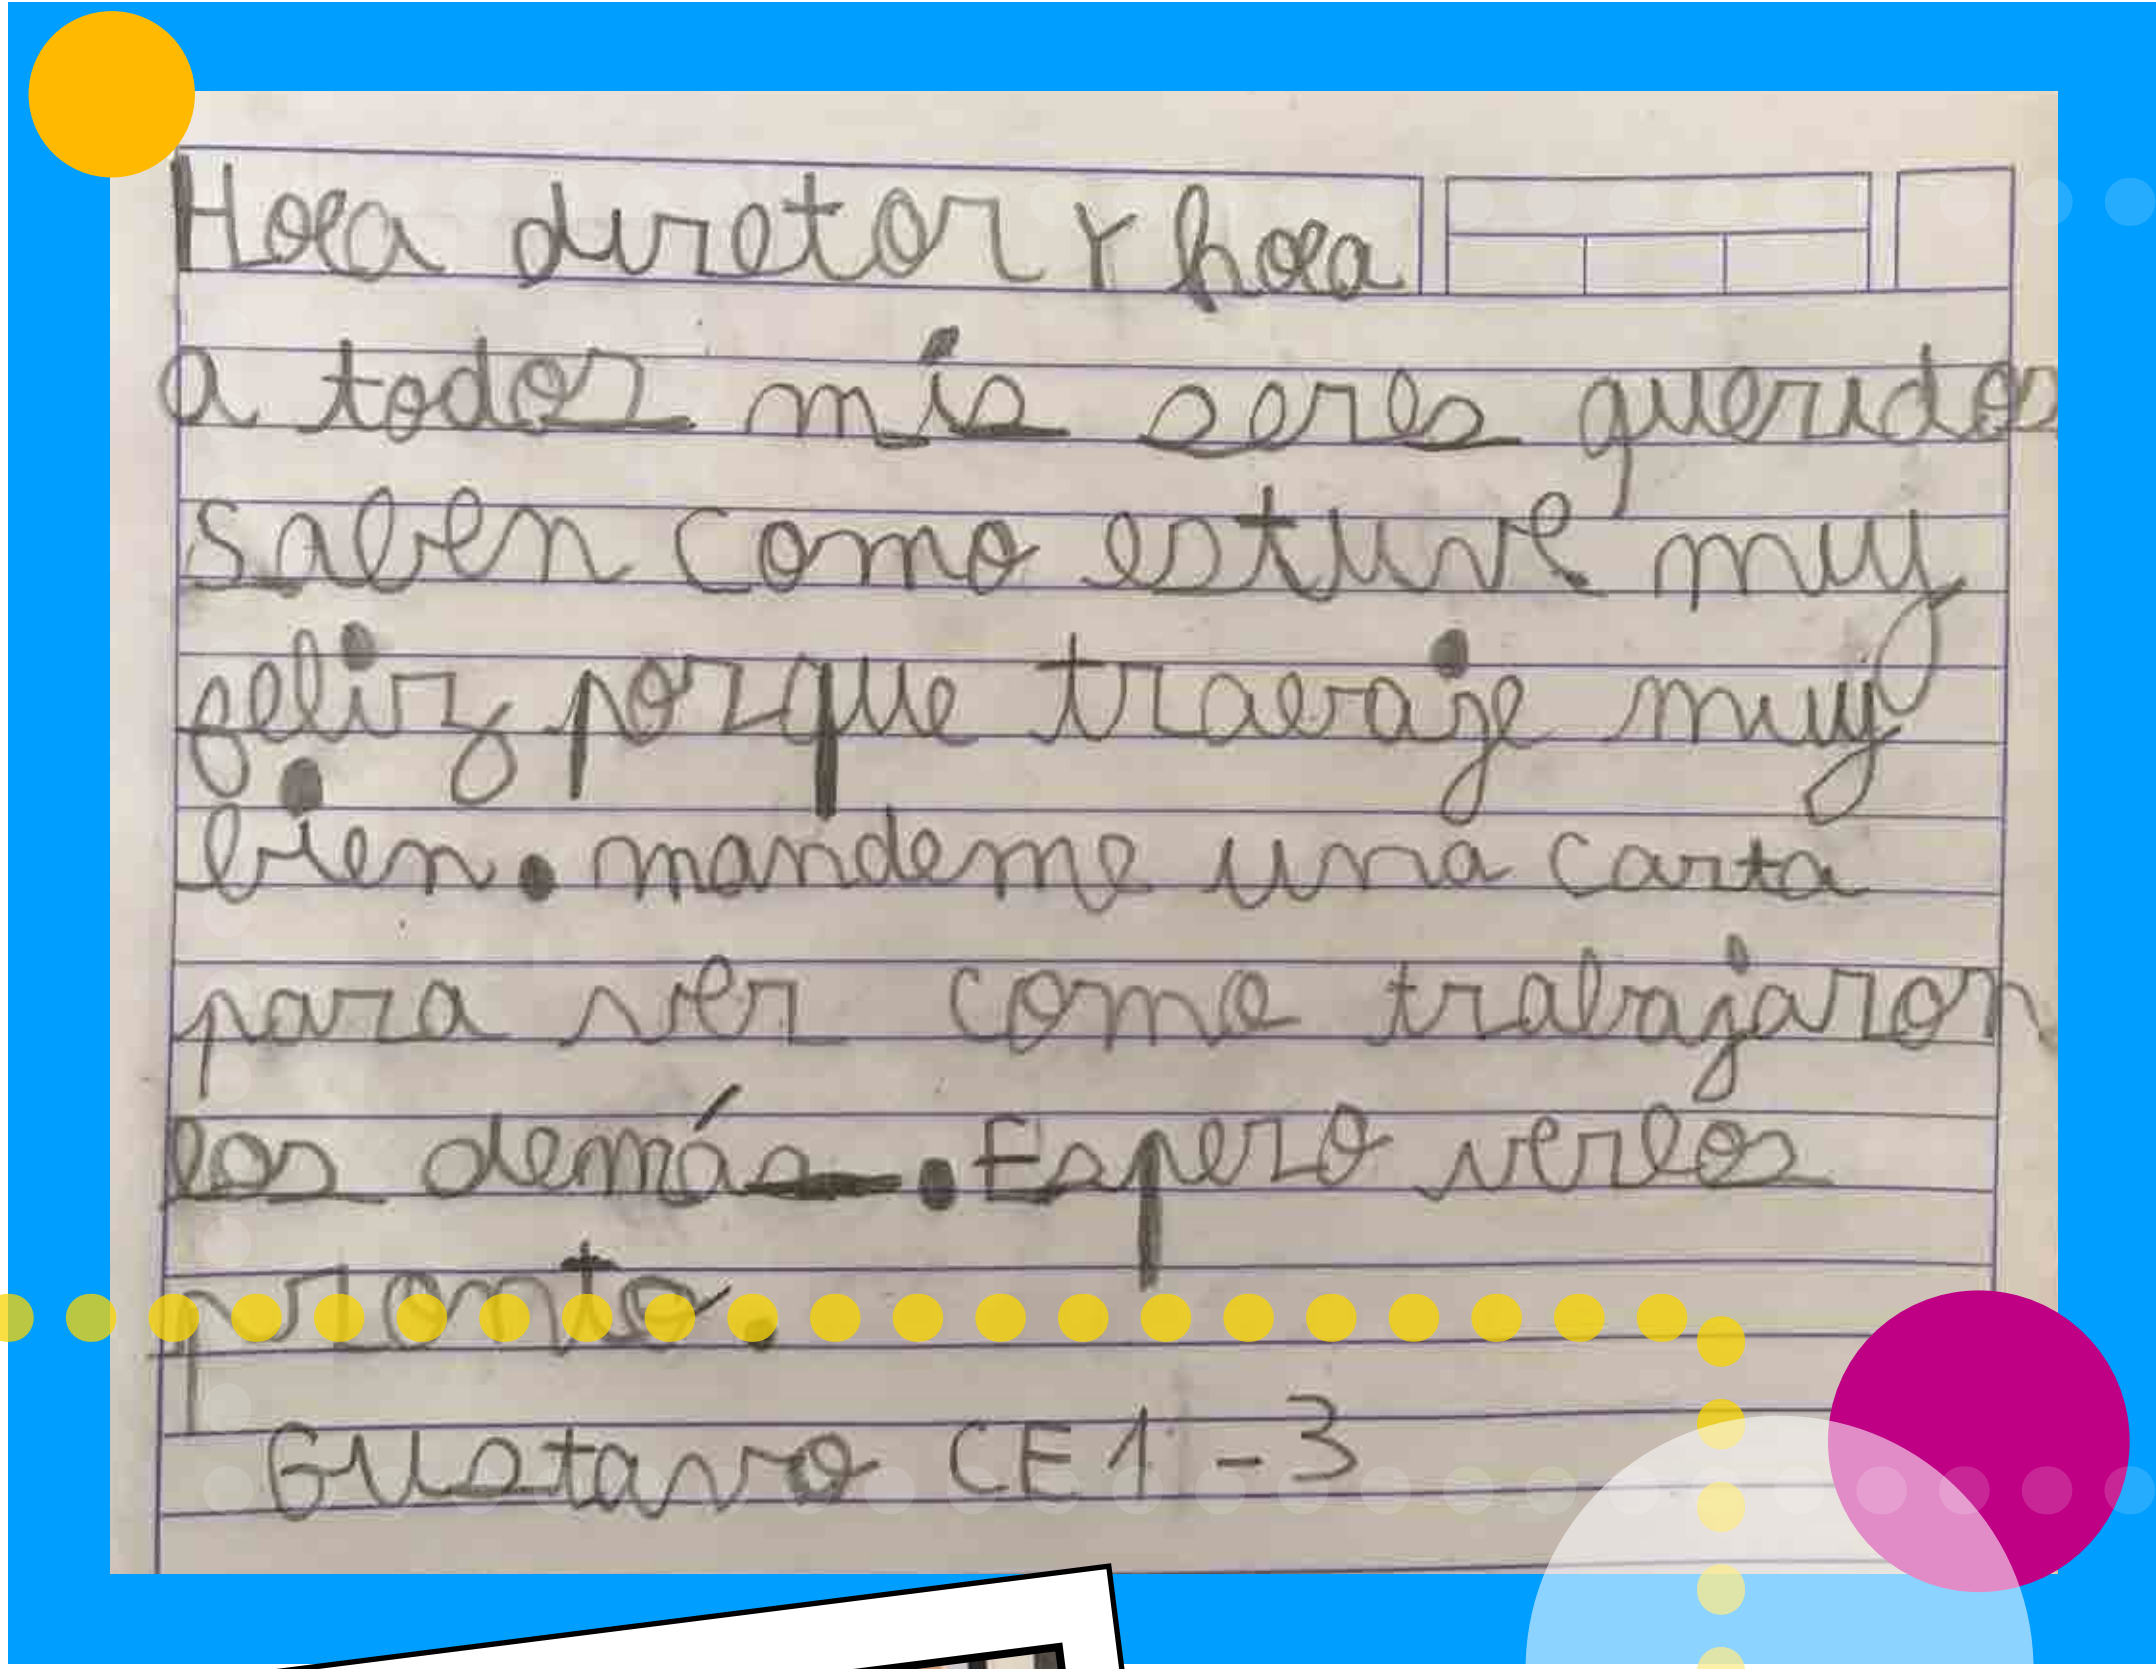 Hola diretor Y hola
a todos mis seres queridos
Saben como estuve muy
feliz porque trabaje muy
bien. mandeme una carta
para ver como trabajaron
los demás. Espero verlos
pronto.
Gustavo CE1-3